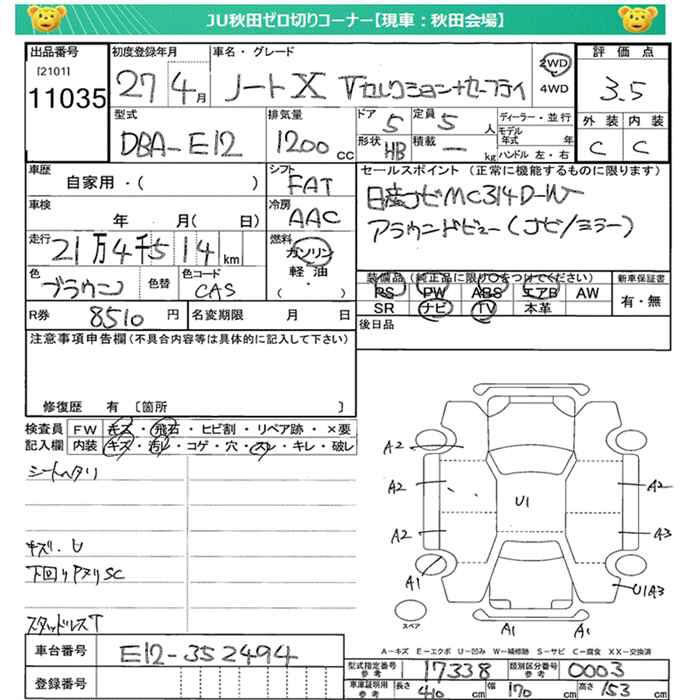 JU秋田ゼロ切りコーナー【現車：秋田会場】
出品番号 初度登録年月 車名・グレード 評価点
[2101] 27年 4月 ノートX Vセレクション+セーフティ 2WD 4WD 3.5
11035
型式 排気量 ドア 定員 ディーラー・並行 外装 内装
DBA-E12 1200cc 5 5人 モデル年式 年 C C
形状 HB 積載 ー kg ハンドル 左・右
車歴 シフト セールスポイント (正常に機能するものに限ります)
自家用・( ) FAT 日産ナビMC314D-W
車検 冷房 アラウンドビュー(ナビ/ミラー)
年 月( 日) AAC
走行 燃料
21万4千514km ガソリン
軽油・( )
色 色替 色コード 装備品(純正品に限り○をつけてください) 新車保証書
ブラウン CAS PS PW ABS エアB AW 有・無
SR ナビ TV 本革
R券 8510円 名変期限 月 日 後日品
注意事項申告欄(不具合内容等は具体的に記入して下さい)
修復歴 有 〔箇所 〕
検査員 FW キズ・飛石・ヒビ割・リペア跡・×要
記入欄 内装 キズ・汚レ・コゲ・穴・スレ・キレ・破レ
シートヘタリ
キズ.U
下回りPヌリSC
スタッドレスT
A2
A2 A2
U1
A2 A3
A1 U1A3
スペア A1 A1
A-キズ E-エクボ U-凹み W-補修跡 S-サビ C-腐食 XX-交換済
車台番号 E12-352494
登録番号
型式指定番号 参考 17338 類別区分番号 参考 0003
車庫証明用 参考 長さ 410cm 幅 170cm 高さ 153cm